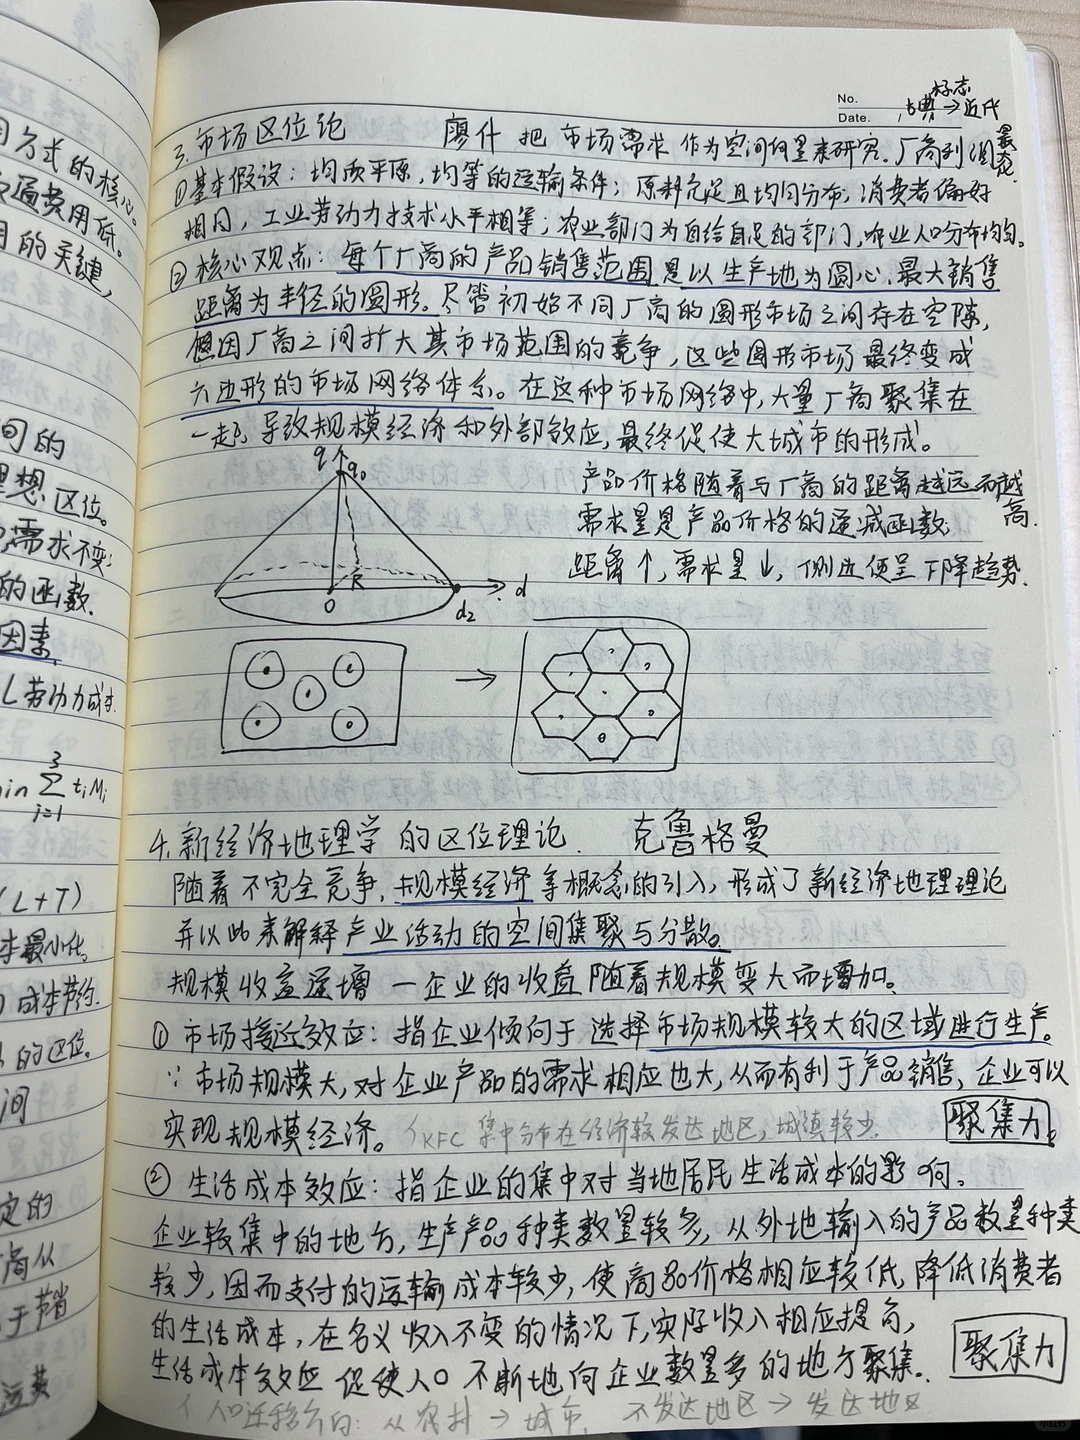 标志
No.
古典→近代
Date. /
3. 市场区位论 廖什 把市场需求作为空间向量来研究. 厂商利润最大化.
①基本假设：均质平原，均等的运输条件；原料充足且均匀分布；消费者偏好
相同，工业劳动力技术水平相等；农业部门为自给自足的部门，农业人口分布均匀。
② 核心观点：每个厂商的产品销售范围是以生产地为圆心、最大销售
距离为半径的圆形。尽管初始不同厂商的圆形市场之间存在空隙，
但因厂商之间扩大其市场范围的竞争，这些圆形市场最终变成
六边形的市场网络体系。在这种市场网络中，大量厂商聚集在
一起，导致规模经济和外部效应，最终促使大城市的形成。
q
q₀
产品价格随着与厂商的距离越远而越高.
需求量是产品价格的递减函数;
距离↑, 需求量↓, 侧边便呈下降趋势.
R
O
d₂
d
→
4. 新经济地理学的区位理论. 克鲁格曼
随着不完全竞争，规模经济等概念的引入，形成了新经济地理理论
并以此来解释产业活动的空间集聚与分散。
规模收益递增 — 企业的收益随着规模变大而增加。
① 市场接近效应：指企业倾向于选择市场规模较大的区域进行生产。
∵市场规模大，对企业产品的需求相应也大，从而有利于产品销售，企业可以
实现规模经济。KFC 集中分布在经济较发达地区，城镇较少. 聚集力
② 生活成本效应：指企业的集中对当地居民生活成本的影响。
企业较集中的地方，生产产品种类数量较多，从外地输入的产品数量种类
较少，因而支付的运输成本较少，使商品价格相应较低，降低消费者
的生活成本，在名义收入不变的情况下,实际收入相应提高，
生活成本效应促使人口不断地向企业数量多的地方聚集。 聚集力
人口迁移方向：从农村→城市，不发达地区→发达地区
用方式的核心。
费用低。
的关键，
间的
理想区位。
需求不变；
的函数.
因素
L劳动力成本.
min ∑ tᵢMᵢ
3
i=1
(L+T)
本最小化。
成本节约.
的区位。
间
定的
商从
于节省
运费